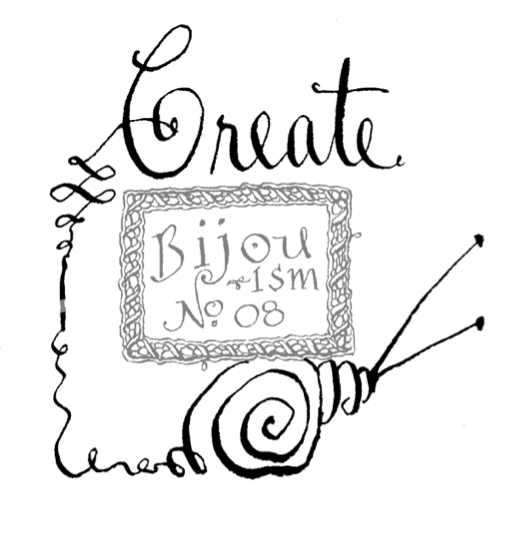 Create
Bijou
~ISM
No. 08